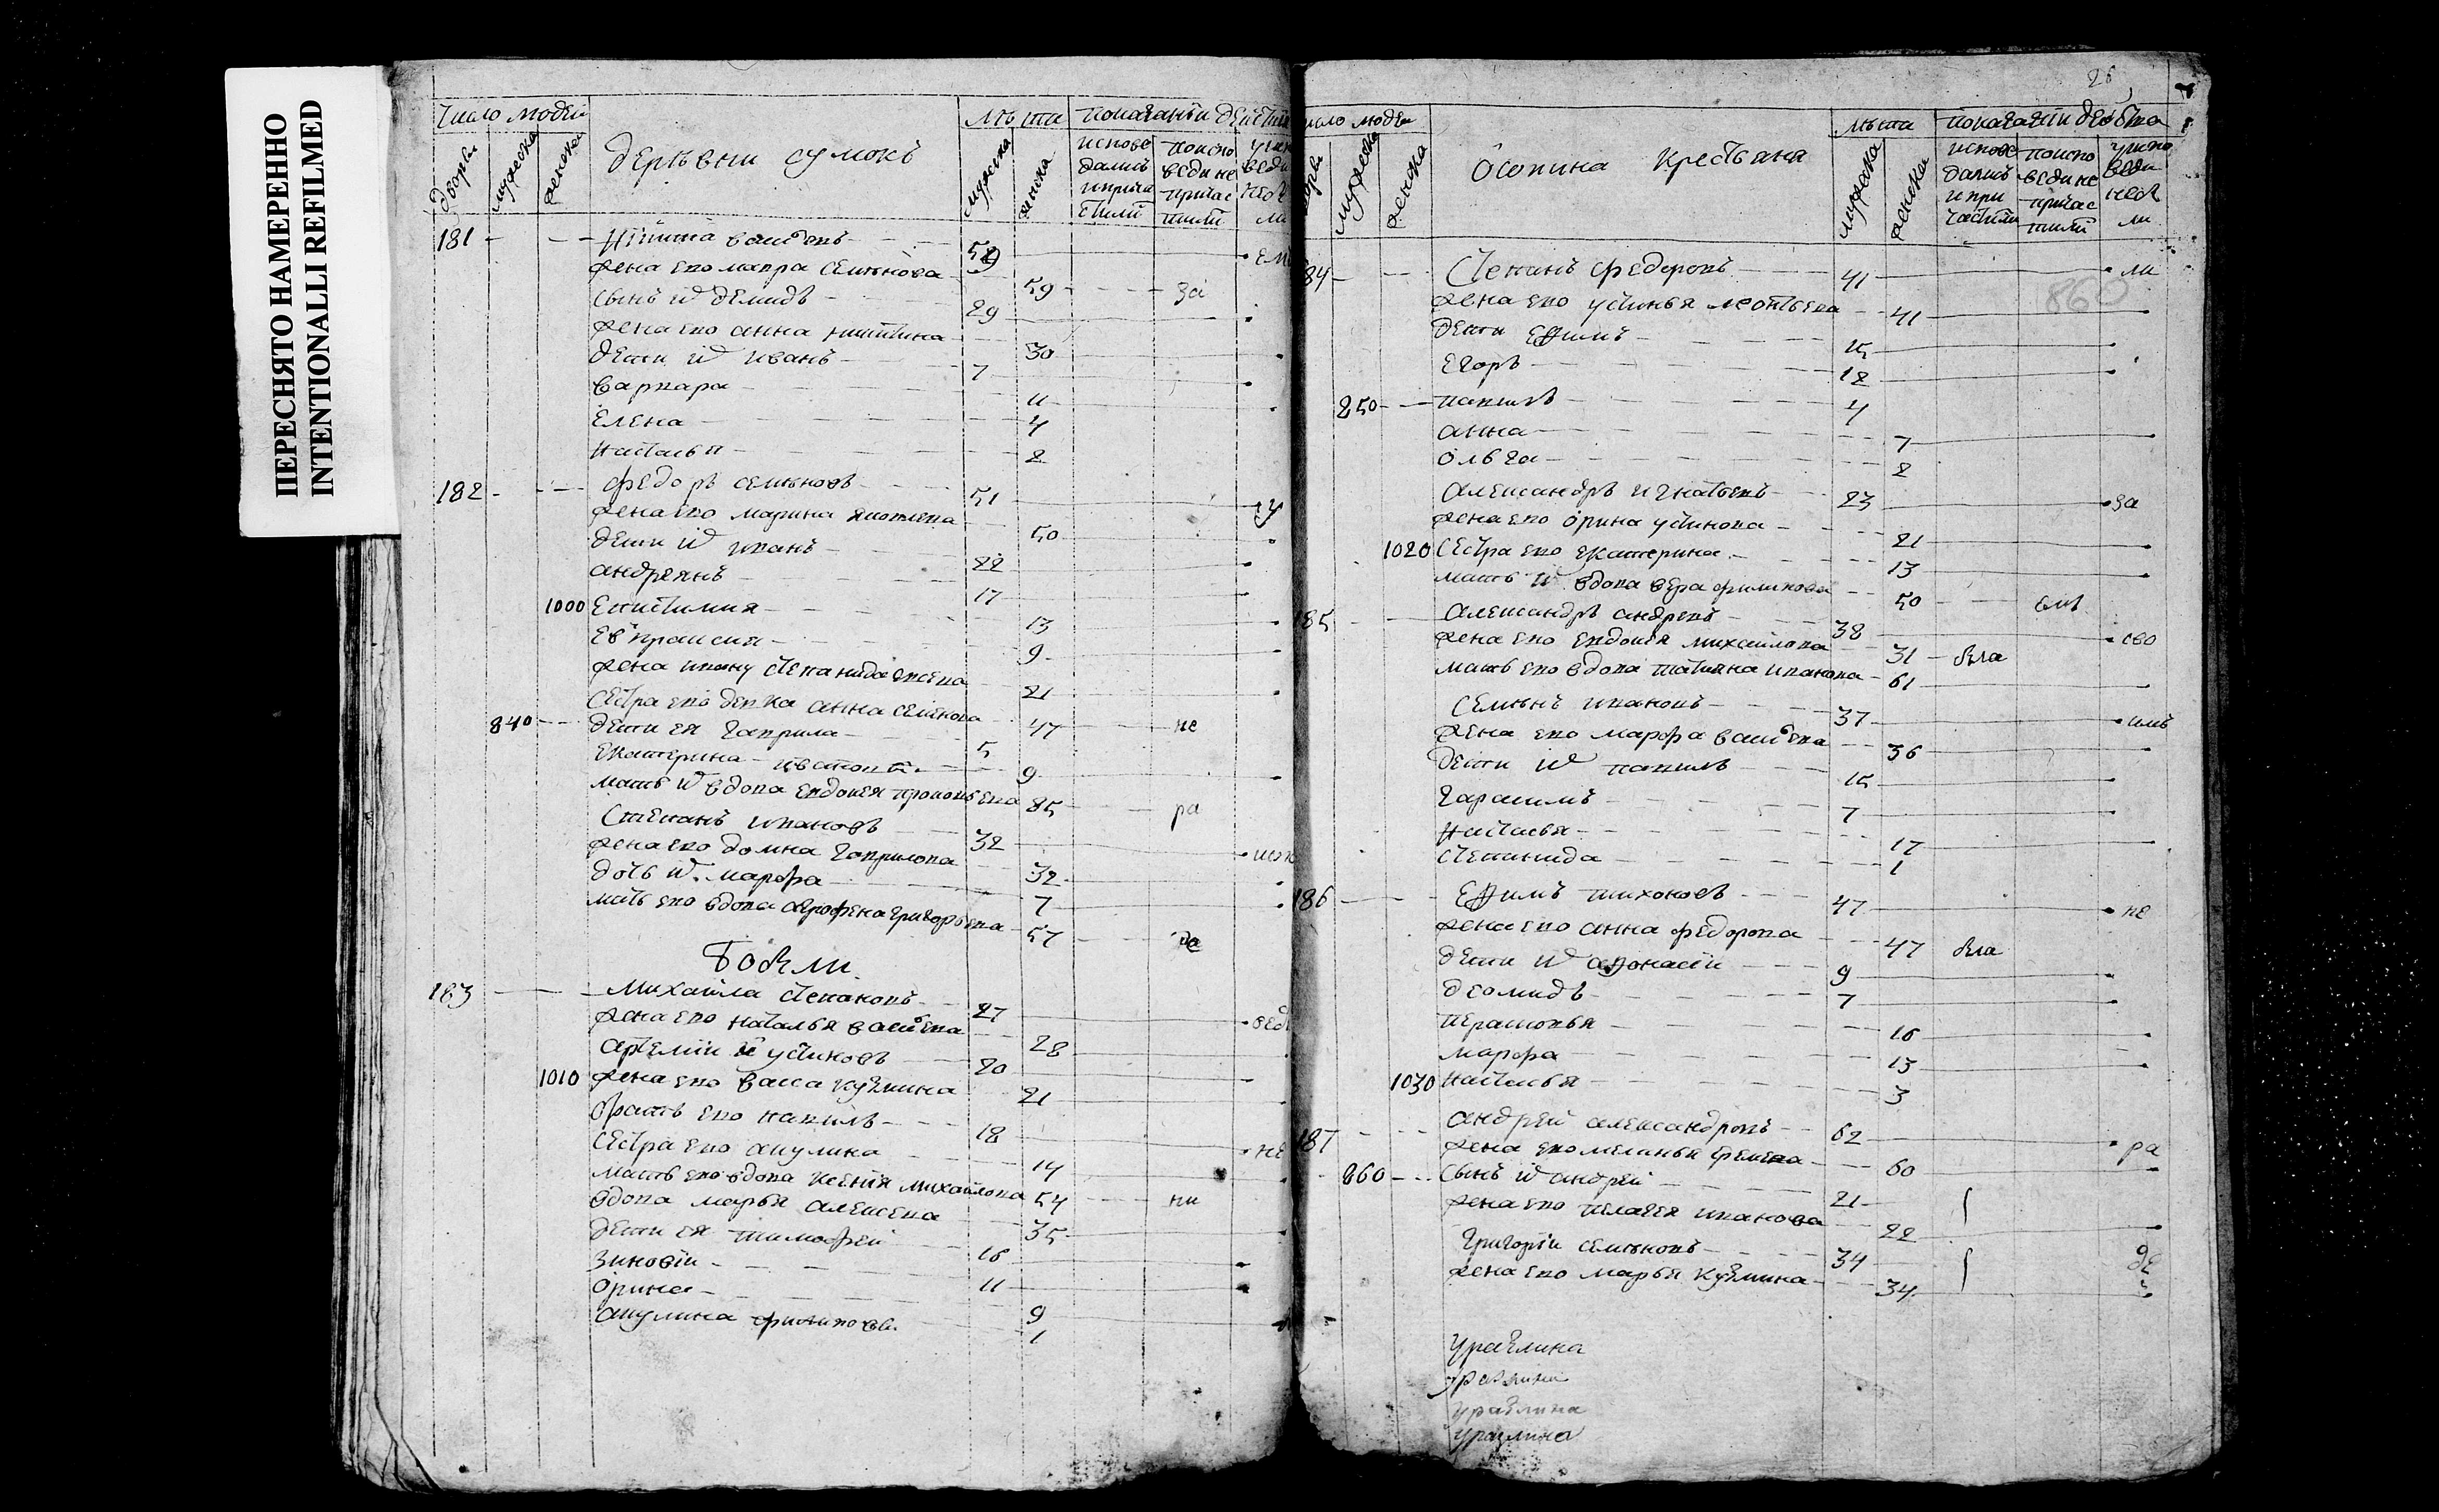 ПЕРЕСНЯТО НАМЕРЕННО
INTENTIONALLI REFILMED
число людей
лѣта
показаніи действ
дворы
мужеска
женска
деревни сумокъ
мужеска
женска
испове дались и прича стили
по испо веди не причас тили
181 Никита васильевъ 59
жена ево мавра семенова 59 за
сынъ их демидъ 29
жена ево анна никитина 30
дети их иванъ 7
варвара 11
елена 4
настасья 2
182 федоръ семеновъ 51
жена ево марина яковлева 50
дети их иванъ 22
андреянъ 17
1000 епистимия 13
евпраксия 9
жена ивану степанида 21
сестра ево девка анна семенова 47 не
840 дети ея гаврила 5
екатерина 9
мать их вдова евдокея прокопьева 85 ра
Степанъ ивановъ 32
жена ево домна гаврилова 32
дочь их марфа 7
мать ево вдова агрофена григорьева 57
Бобыли
183 Михайла степановъ 27
жена ево наталья васильева 28
артемии устиновъ 20
1010 жена ево васса кузмина 21
братъ ево павилъ 18
сестра ево акулина 14
мать ево вдова ксения михайлова 54 ни
вдова марья алексева 35
дети ея тимофей 16
зиновіи 11
орина 9
акулина 1
26
число люде
лѣта
показаніи действа
мужеска
женска
Осокина крестьяня
мужеска
женска
испове дались и при частили
по испо веди не причас тили
84 Степанъ федоровъ 41 ли
860
жена ево устинья леонтьева 41
дети ефимъ 15
егоръ 12
850 павилъ 4
анна 7
ольга 2
александръ игнатьевъ 23 за
жена ево орина устинова 21
1020 сестра ево екатерина 13
мать их вдова вера филипова 50
185 александръ андревъ 38 сво
жена ево евдокия михайлова 31 была
мать ево вдова татияна иванова 61
семенъ ивановъ 37 имъ
жена ево марфа васильева 36
дети их павилъ 15
гарасимъ 7
настасья 17
степанида 1
186 ефимъ тихоновъ 47 не
жена ево анна федорова 47 была
дети их афонасіи 9
деомидъ 7
перасковья 16
марфа 13
1030 настасья 3
187 андрей александровъ 62 ра
жена ево меланья 60
860 сынъ их андрей 21
жена ево пелагея иванова 22
григорій семеновъ 34 де
жена ево марья кузмина 34
уразлина
уразлина
уразлина
уразлина